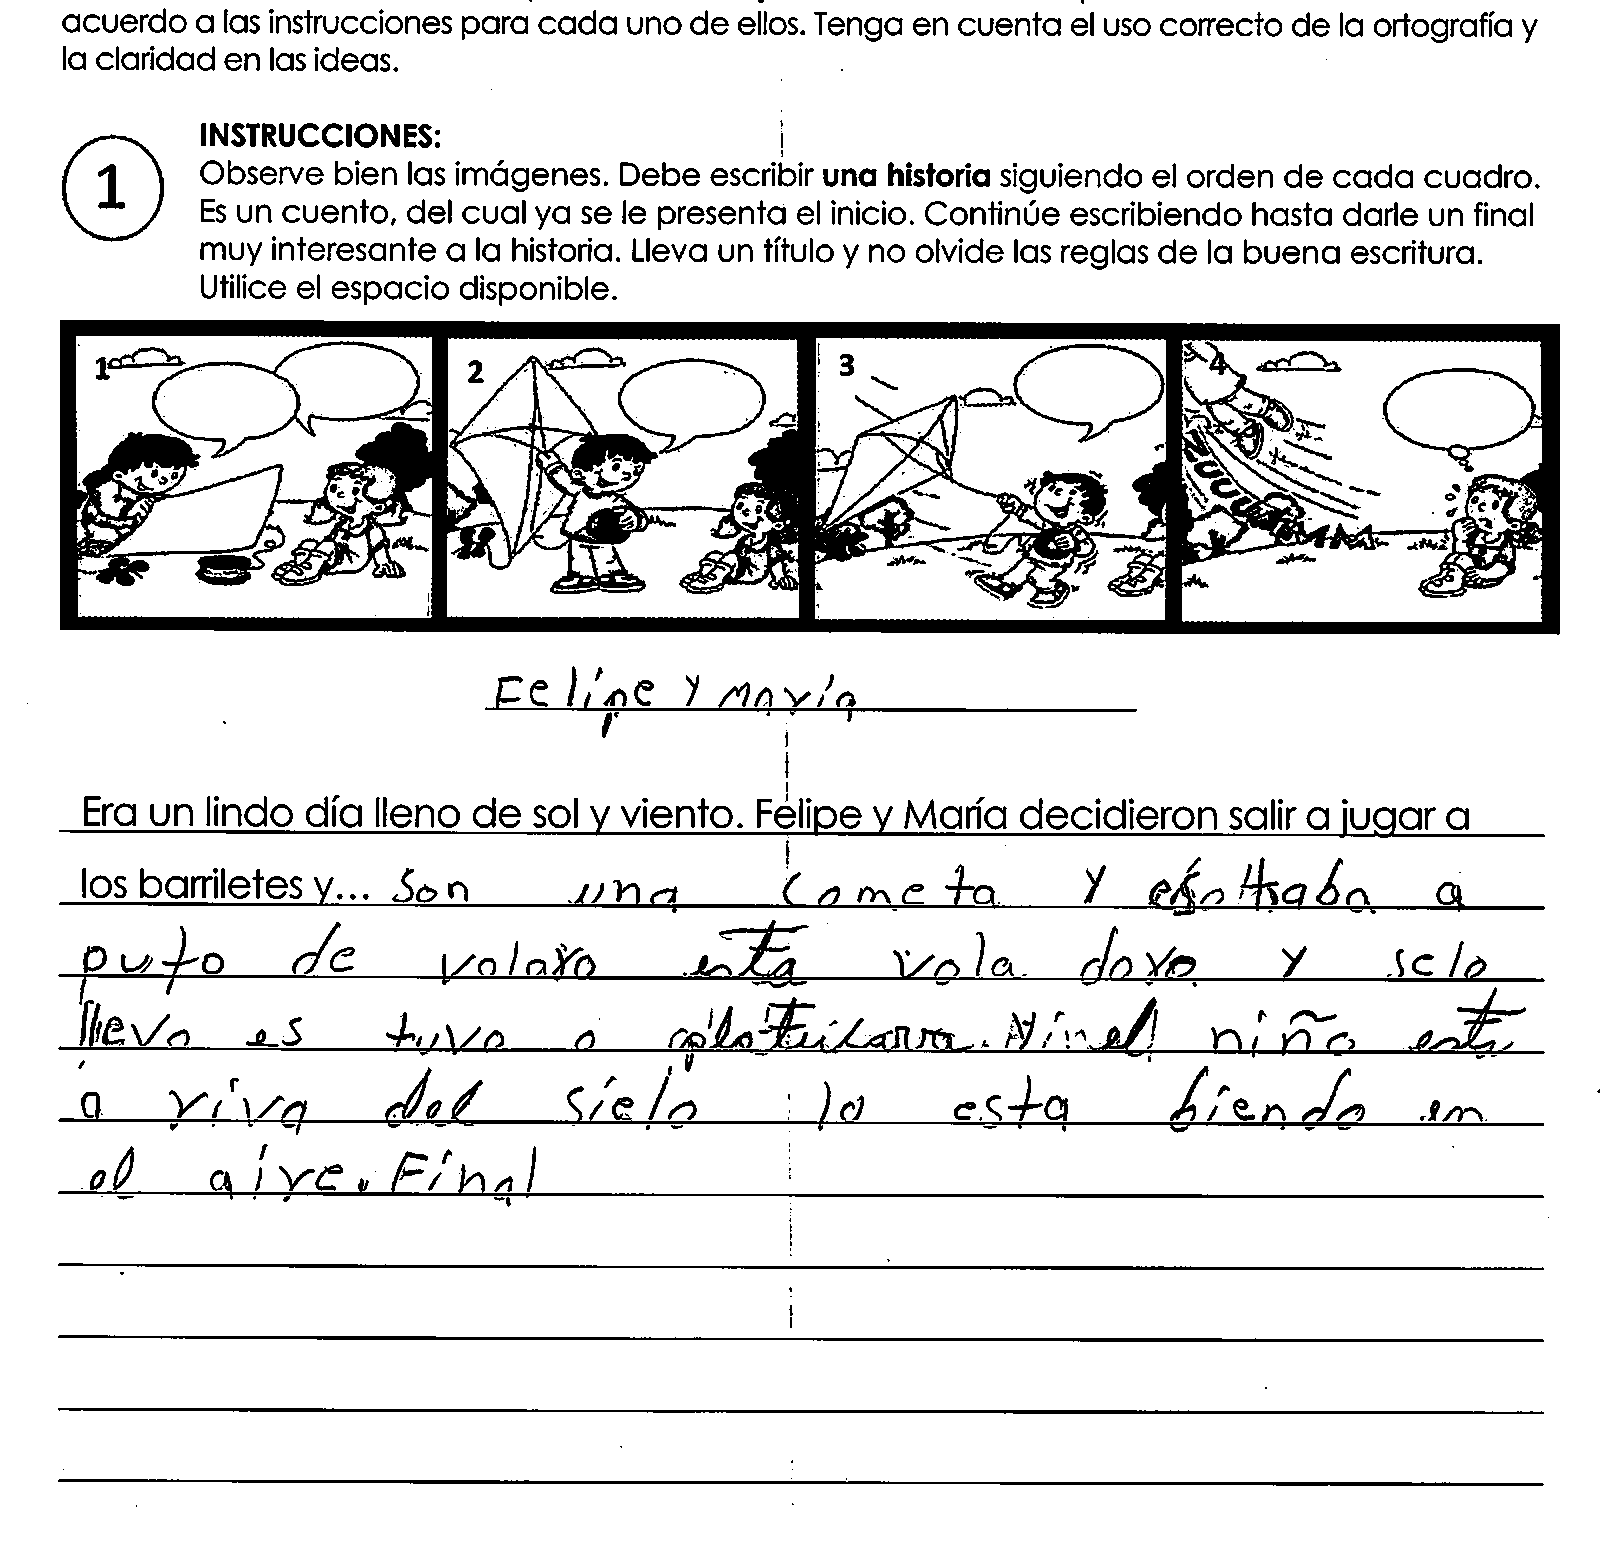 acuerdo a las instrucciones para cada uno de ellos. Tenga en cuenta el uso correcto de la ortografía y
la claridad en las ideas.
1
INSTRUCCIONES:
Observe bien las imágenes. Debe escribir una historia siguiendo el orden de cada cuadro.
Es un cuento, del cual ya se le presenta el inicio. Continúe escribiendo hasta darle un final
muy interesante a la historia. Lleva un título y no olvide las reglas de la buena escritura.
Utilice el espacio disponible.
1 2 3 4
Felipe y María
Era un lindo día lleno de sol y viento. Felipe y María decidieron salir a jugar a
los barriletes y... son una cometa y a
puto de volaro esta vola doro y selo
llevo es tuvo a niño est
a riva del sielo lo esta biendo en
el aire. Final